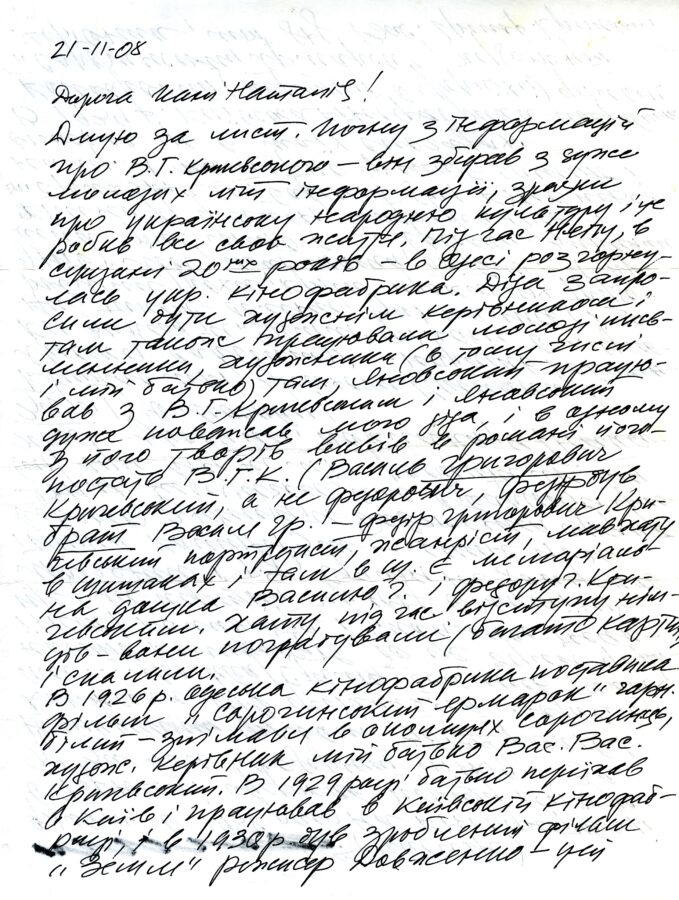 21-11-08
Дорога Пані Наталія!
Дякую за лист. Почну з інформацій
про В.Г. Кричевського – він збирав з дуже
молодих літ інформації, зразки
про українську народню культуру і це
робив все своє життя. Під час Непу, в
середині 20их років – в Одесі розгорну-
лась укр. кінофабрика. Діда запро-
сили бути художнім керівником і
там також працювали молоді пись-
менники, художники (в тому числі
і мій батько) там, Яновський працю-
вав з В.Г. Кричевським і Яновський
дуже поважав мого діда, і в одному
з його творів вивів в романі його
постать В.Г.К. (Василь Григорович
Кричевський, а не Федорович, Федір був
брат Василя Гр. – Федір Григорович Кри-
чевський портретист, жанріст, мав хату
в Шишаках і там в Ш. є меморіаль-
на дошка Василю Г. і Федору Г. Кри-
чевським. Хату під час відступу нім-
ців – вони пограбували (багато картин)
і спалили.
В 1926 р. Одеська кінофабрика поставила
фільм „Сорочинський ермарок"
фільм – знімався в околицях Сорочинець,
худож. керівник мій батько Вас. Вас.
Кричевський. В 1929 році батько переїхав
в Київ і працював в Київській кінофаб-
риці, і в 1930 р. був зроблений фільм
„Земля" режисер Довженко – цей